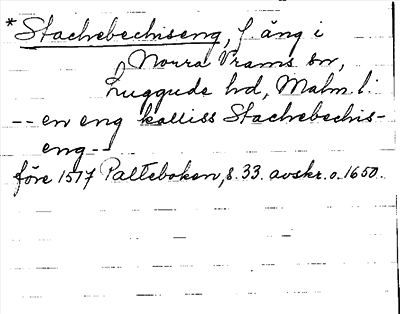 *Stachebechiseng, f. äng i
Norra Vrams sn,
Luggude hd, Malm. l:
-- en eng kalliss Stachebechis-
eng --
före 1517 Palteboken, s. 33. avskr. o. 1650.